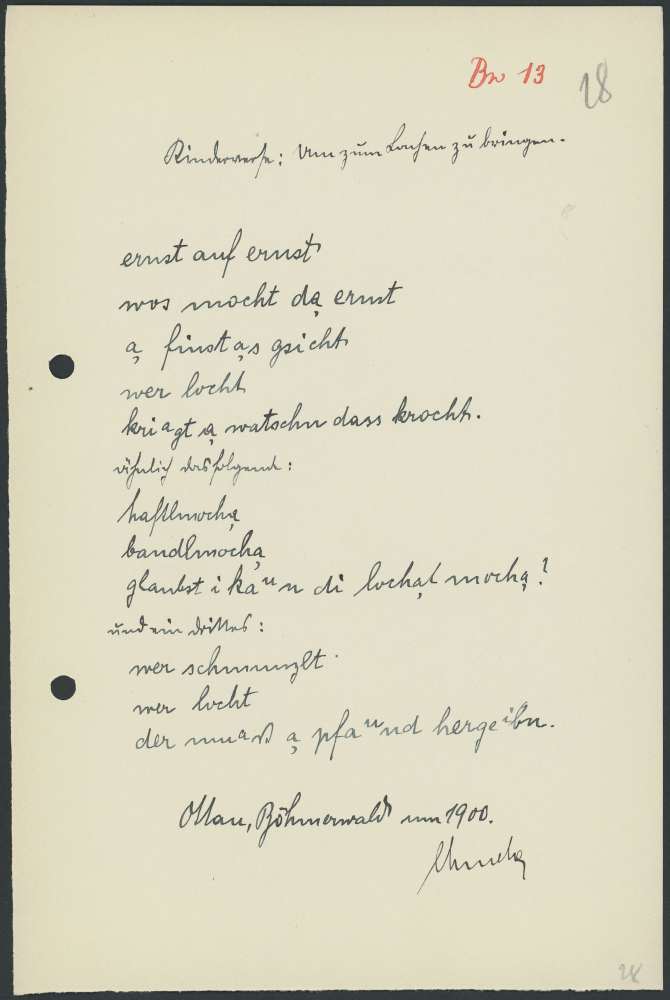 Bw 13
28
Kinderverse: Um zum Lachen zu bringen.
ernst auf ernst
wos mocht dą ernst
ą finstąs gsicht
wer locht
kriᵃgt ą watschn dass krocht.
ähnlich das folgende:
haftlmochą
bandlmochą
glaubst i kaᵘn di lochąt mochą?
und ein drittes:
wer schmunzlt
wer locht
der muᵃß ą pfaᵘnd hergeⁱbn.
Ottau, Böhmerwald um 1900.
28